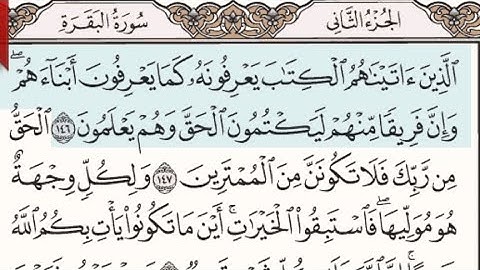 الجزء الثاني
سورة البقرة
الَّذِينَ ءَاتَيْنَٰهُمُ الْكِتَٰبَ يَعْرِفُونَهُۥ كَمَا يَعْرِفُونَ أَبْنَآءَهُمْ ۖ
وَإِنَّ فَرِيقًا مِّنْهُمْ لَيَكْتُمُونَ الْحَقَّ وَهُمْ يَعْلَمُونَ ١٤٦ الْحَقُّ
مِن رَّبِّكَ فَلَا تَكُونَنَّ مِنَ الْمُمْتَرِينَ ١٤٧ وَلِكُلٍّ وِجْهَةٌ
هُوَ مُوَلِّيهَا فَاسْتَبِقُوا الْخَيْرَٰتِ ۚ أَيْنَ مَا تَكُونُوا يَأْتِ بِكُمُ اللَّهُ